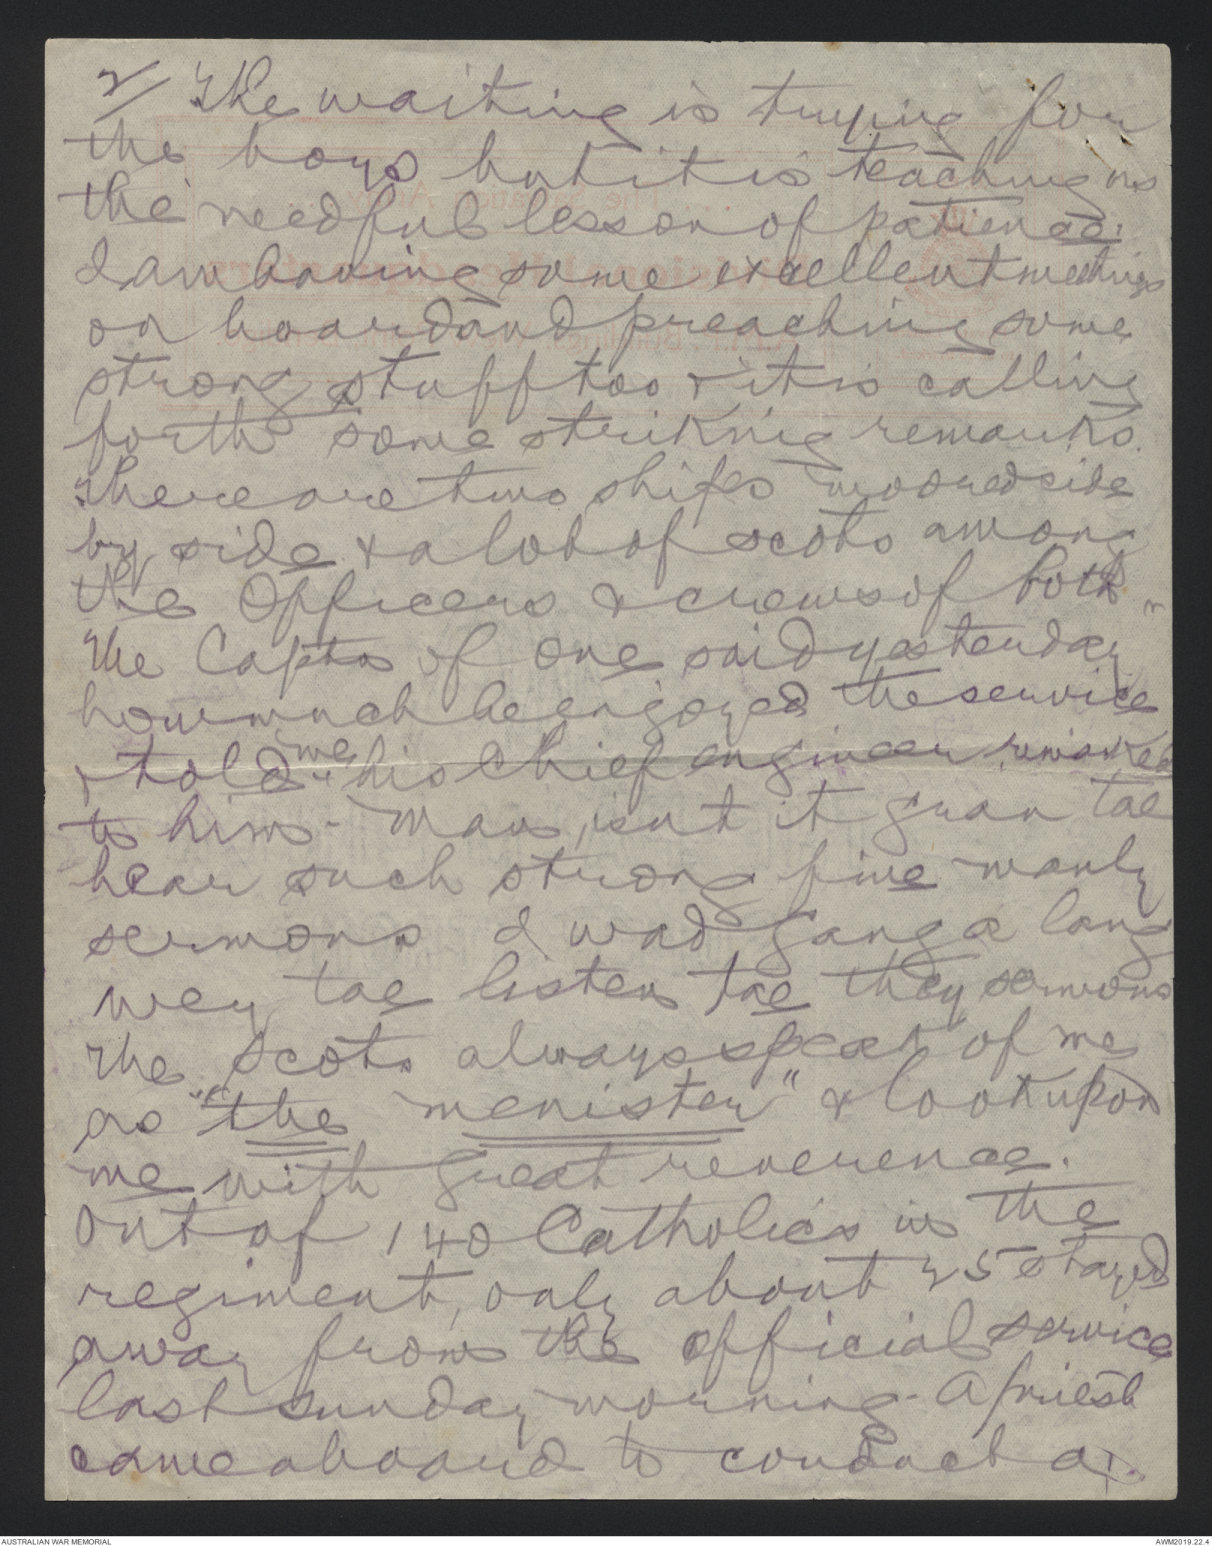 2/ The waiting is trying for
the boys but it is teaching us
the needful lesson of patience.
I am having some excellent meetings
on board and preaching some
strong stuff too & it is calling
forth some striking remarks.
There are two ships moored side
by side & a lot of scots among
the Officers & crews of both
The Captn of one said yesterday
how much he enjoyed the service
& told me his Chief engineer remarked
to him - "Man, isnt it gran tae
hear such strong fine manly
sermons I wad gang a lang
wey tae listen tae they sermons
The Scots always speak of me
as "the menister" & look upon
me with great reverence.
Out of 140 Catholics in the
regiment, only about 25 stayed
away from the official service
last sunday morning - A priest
came aboard to conduct a
AUSTRALIAN WAR MEMORIAL
AWM2019.22.4